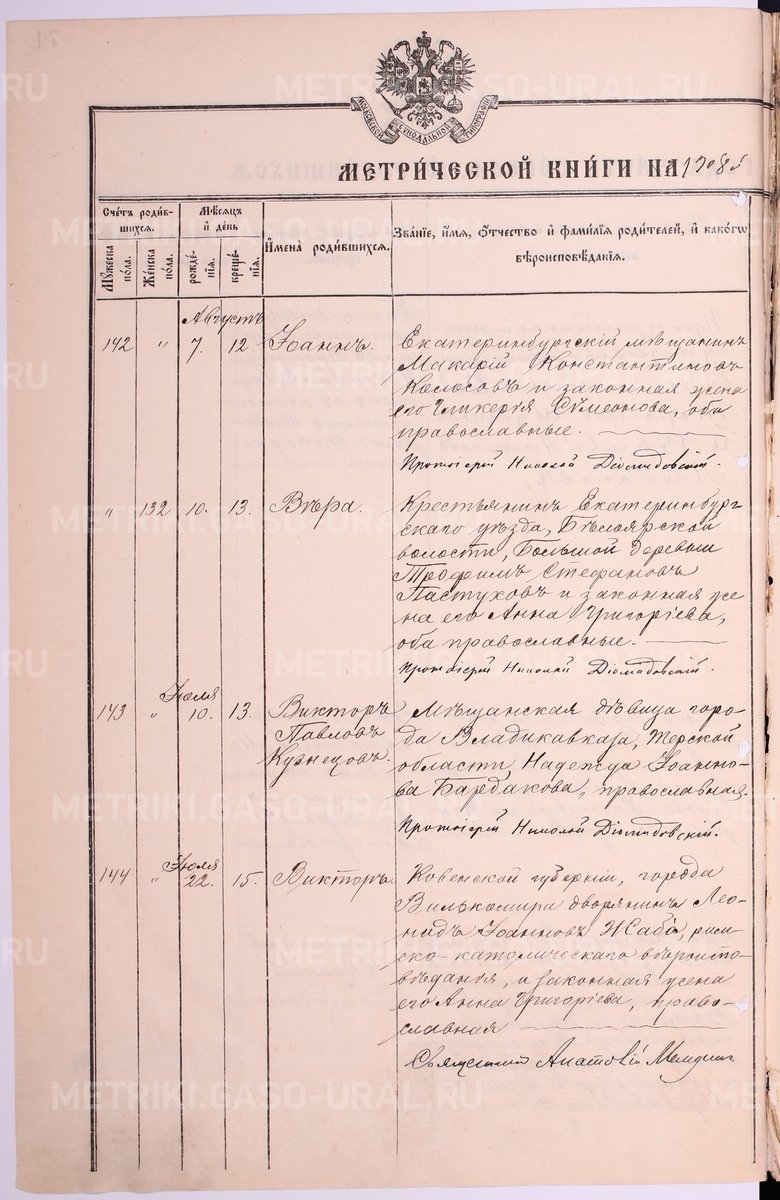 МОСКОВСКОЙ СИНОДАЛЬНОЙ ТИПОГРАФІИ
МЕТРИ́ЧЕСКОЙ КНИ́ГИ НА 1908 5
Счетъ роди́вшихся.
Мꙋжеска по́ла.
Же́нска по́ла.
Мѣ́сяцъ и҆ де́нь
рожде́нїѧ.
креще́нїѧ.
И҆мена̀ роди́вшихсѧ.
Зва́нїе, и҆́мѧ, ѻ҆́тчество и҆ фами́лїѧ роди́телей, и҆ како́гѡ
вѣроисповѣ́данїѧ.
Августъ
142 " 7. 12. Іоаннъ. Екатеринбургскій мѣщанинъ
Макарій Константиновъ
Колосовъ и законная жена
его Гликерія Сѷмеонова, оба
православные.
Протоіерей Николай Діомидовскій.
" 132 10. 13. Вѣра. Крестьянинъ Екатеринбург-
скаго уѣзда, Бѣлоярской
волости, Большой деревни
Трофимъ Стефановъ
Пастуховъ и законная же
на его Анна Григоріева,
оба православные.
Протоіерей Николай Діомидовскій.
Іюля
143 " 10. 13. Викторъ Мѣщанская дѣвица горо-
Павловъ да Владикавказа, Терской
Кузнецовъ. области, Надежда Іоанно-
ва Бардакова, православная.
Протоіерей Николай Діомидовскій.
Іюля
144 " 22. 15. Викторъ. Ковенской губерніи, города
Вилькомира дворянинъ Лео-
нидъ Іоанновъ Жаба, рим-
ско-католическаго вѣроиспо-
вѣданія, и законная жена
его Анна Григоріева, право-
славная
Священникъ Анатолій
METRIKI.GASO-URAL.RU